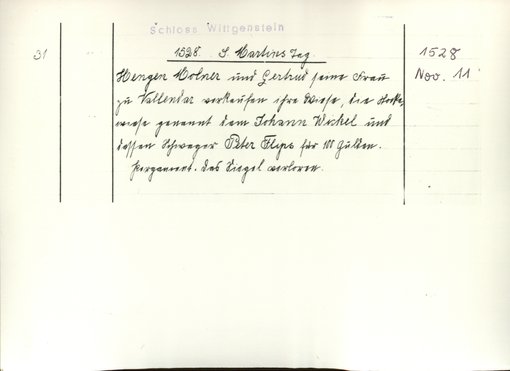 Schloss Wittgenstein
31
1528. S. Martins Tag.
1528
Nov. 11
Henger Molner und Gertrud seine Frau
zu Vallendar verkaufen ihre Wiese, die
wiese genannt dem Johann Wickel und
dessen Schwager Peter Flips für 100 Gulden.
Pergament. Das Siegel verloren.